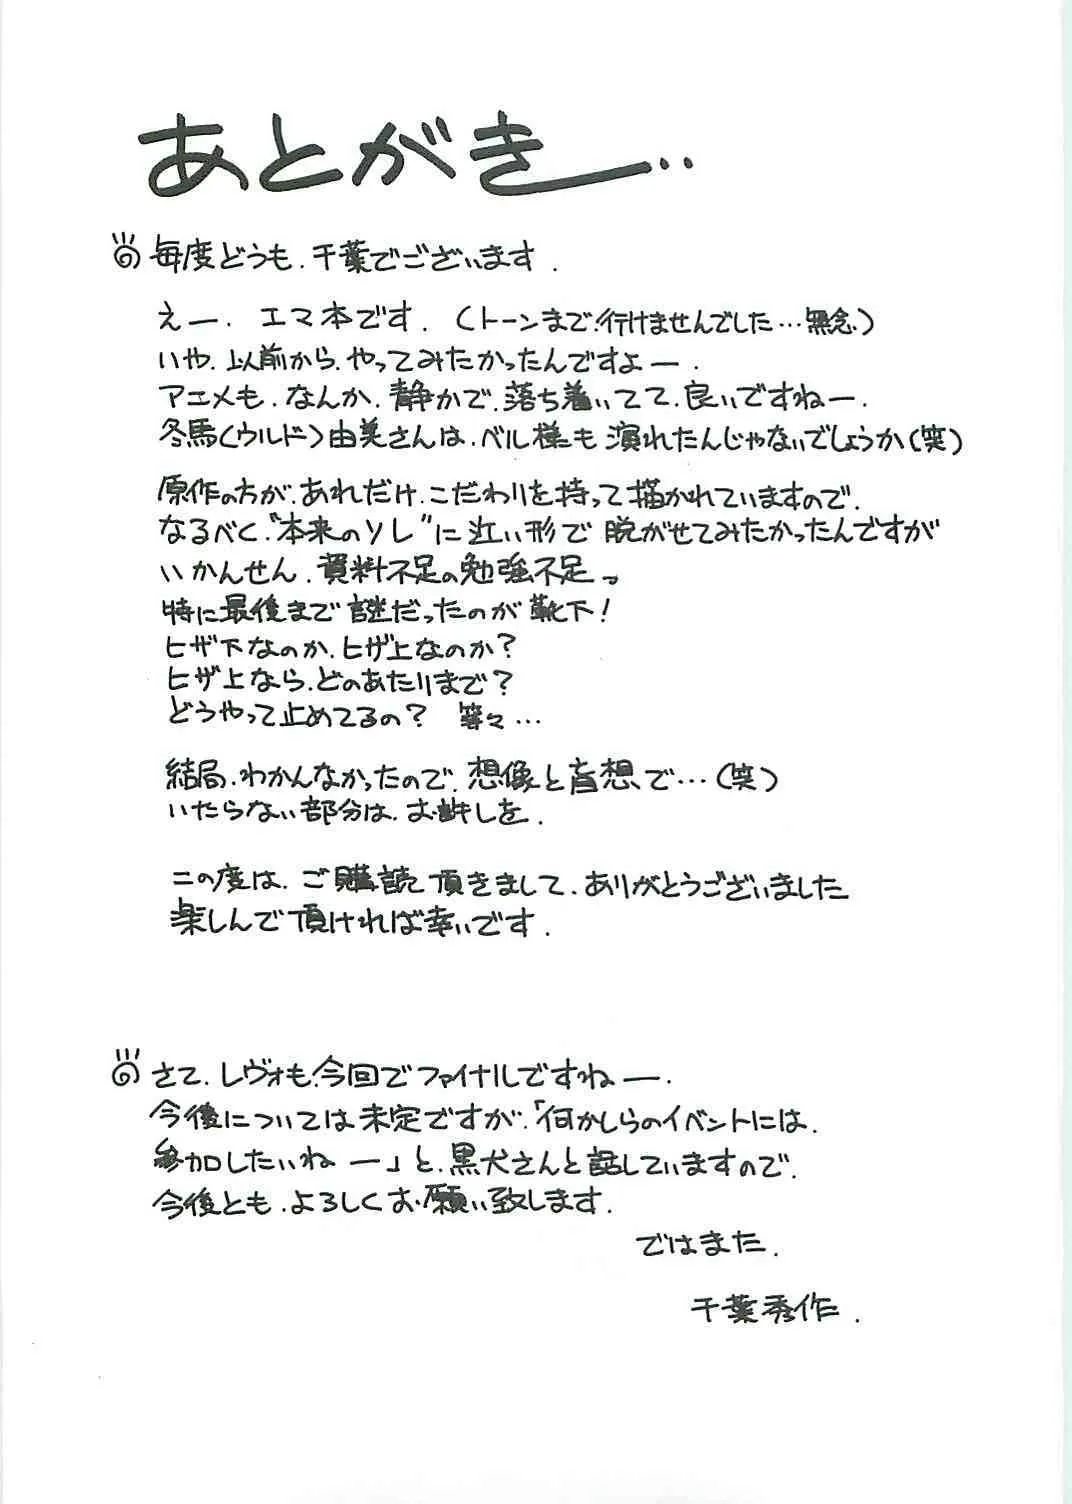 あとがき—..
毎度どうも、千葉でございます.
えー、エマ本です.（トーンまで、行けませんでした…無念）
いや、以前から、やってみたかったんですよー.
アニメも、なんか、静かで、落ち着いてて、良いですねー.
冬馬（ウルド）由美さんは、ベル様にも演れたんじゃないでしょうか（笑）
原作の方が、あれだけ、こだわりを持って描かれていますので、
なるべく、“本来のソレ”に近い形で脱がせてみたかったんですが
いかんせん、資料不足の勉強不足っ
特に最後まで謎だったのが靴下！
ヒザ下なのか、ヒザ上なのか？
ヒザ上なら、どのあたりまで？
どうやって止めてるの？ 等々…
結局、わかんなかったので、想像と妄想、で…（笑）
いたらない部分は、お許しを.
この度は、ご購読頂きまして、ありがとうございました
楽しんで頂ければ幸いです.
さて、レヴォも、今回でファイナルですねー.
今後については未定ですが、「何かしらのイベントには、
参加したいねー」と、黒犬さんと話していますので、
今後とも、よろしくお願い致します.
ではまた.
千葉秀作.